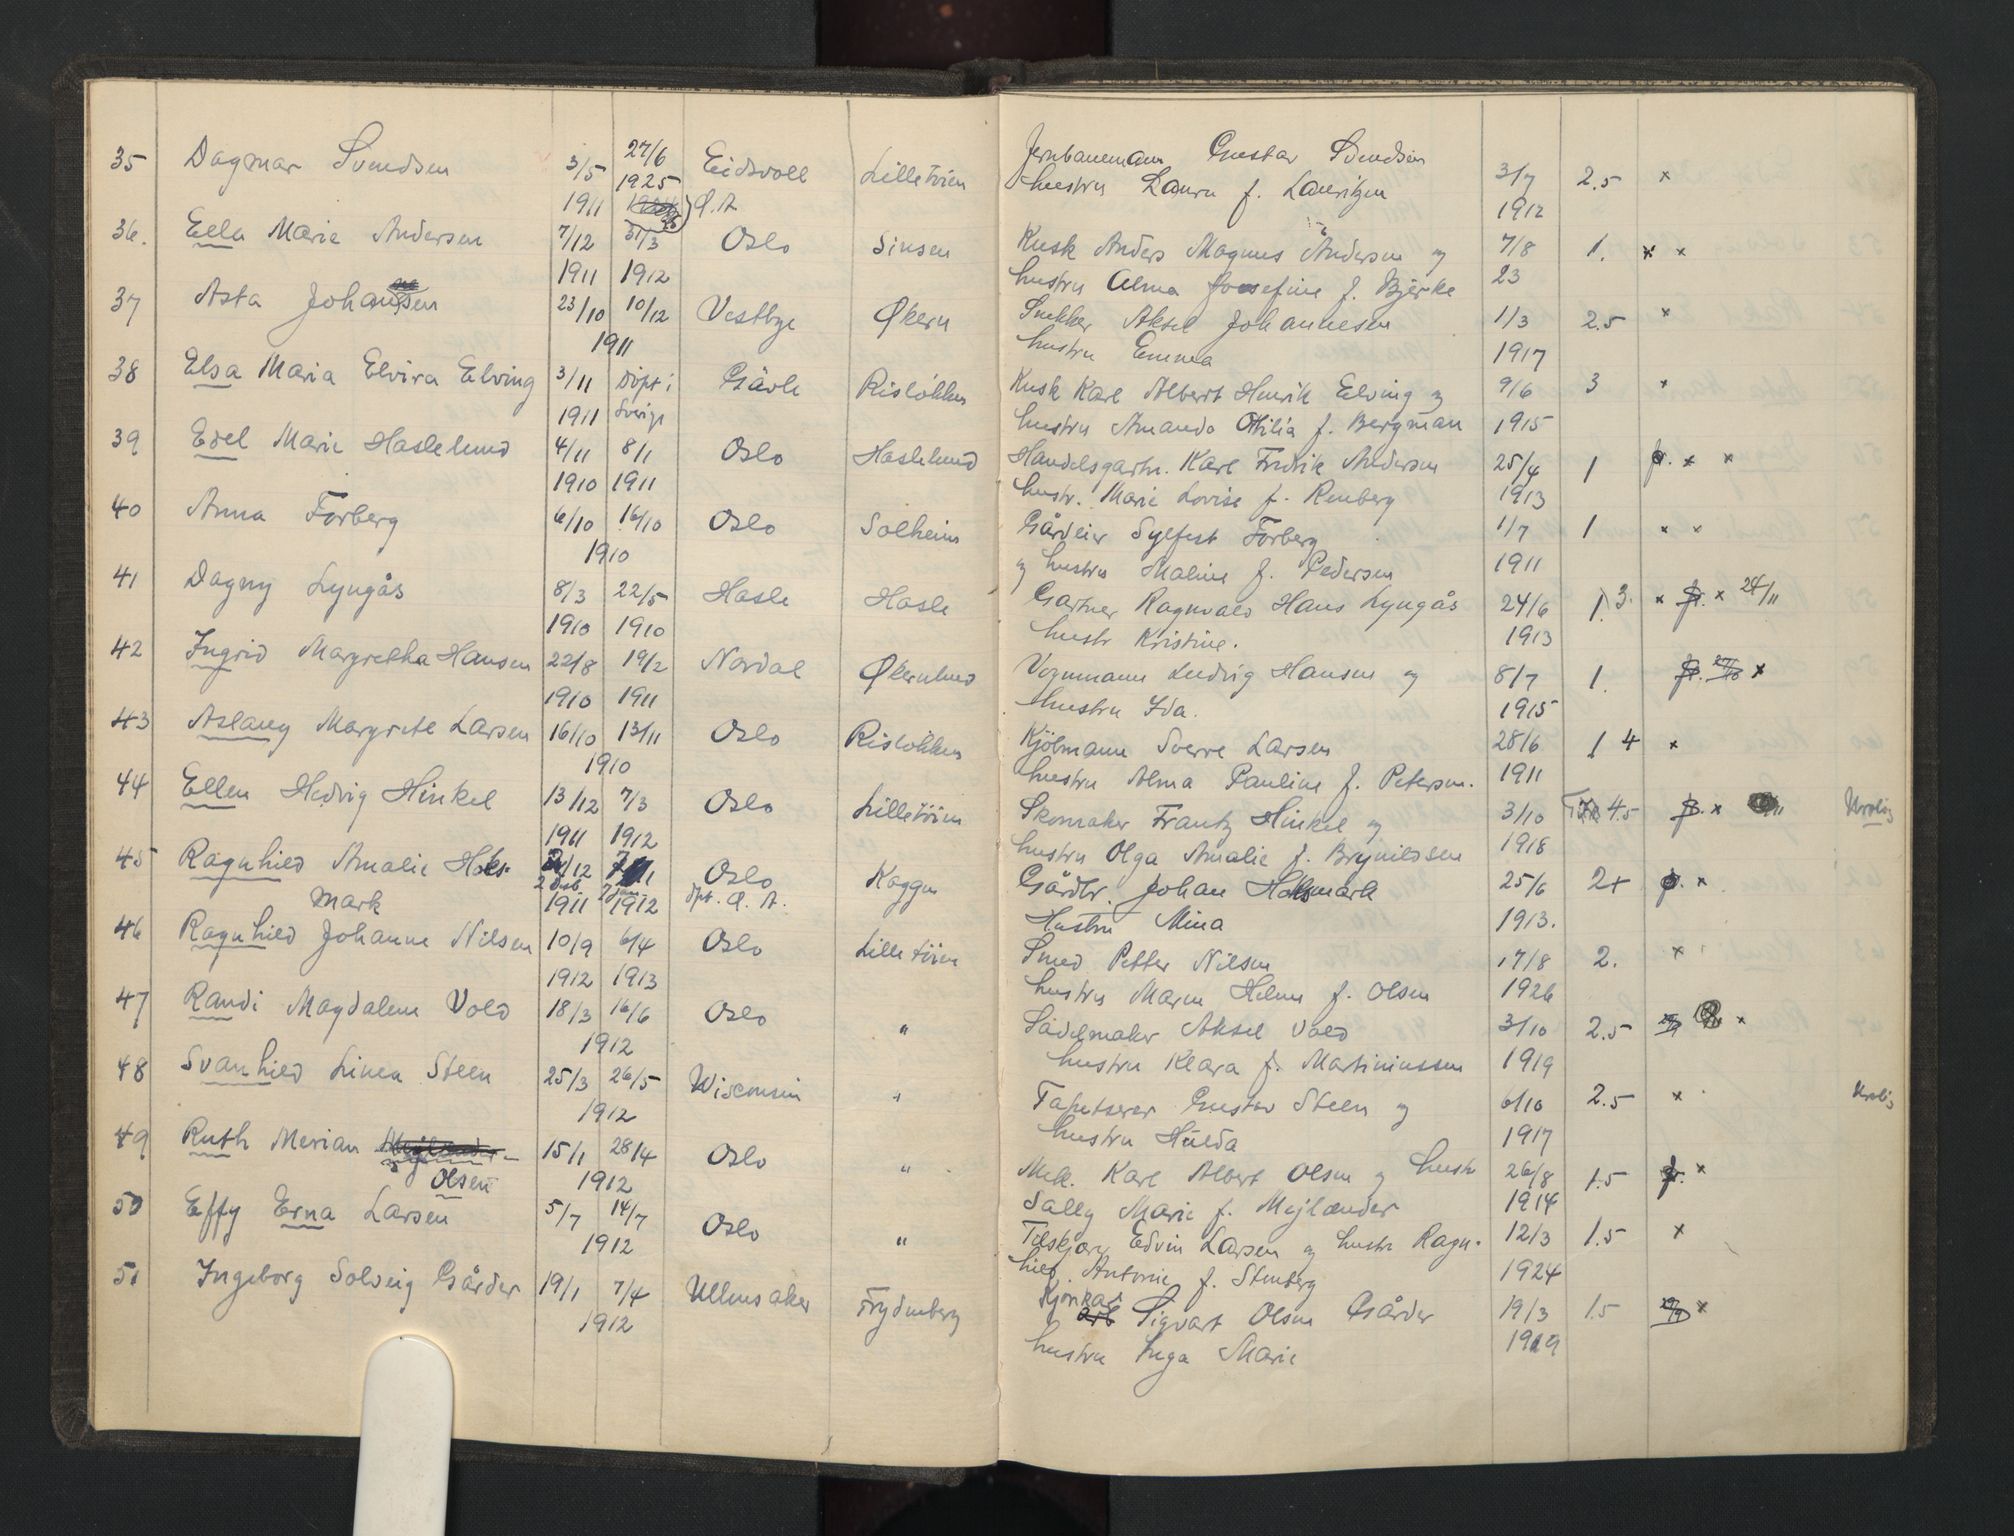 35 Dagmar Svendsen 3/5 27/6 Eidsvoll Lilletöien Jernbanemann Gustav Svendsen 3/7 2.5 x
1911 1925 d.A. hustru Laura f. Lauritzen 1912
36. Ella Marie Andersen 7/12 31/3 Oslo Sinsen Kusk Anders Magnus Andersen og 7/8 1. x x
1911 1912 hustru Alma Josefine f. Bjerke 23
37 Asta Johansen 23/10 10/12 Vestbye Økern Snekker Aksel Johannesen 1/3 2.5 x
1911 hustru Emma 1917
38 Elsa Maria Elvira Elving 3/11 döpt i Gävle Risløkken Kusk Karl Albert Henrik Elving og 9/6 3 x
1911 Sverige hustru Amanda Otilia f. Bergman 1915
39 Edel Marie Haslelund 4/11 8/1 Oslo Haslelund Handelsgartn. Karl Fredrik Andersen 25/4 1 fr. x x
1910 1911 hustr. Marie Lovise f. Renberg 1913
40 Anna Forberg 6/10 16/10 Oslo Solheim Gårdeier Sylfest Forberg 1/7 1 x x
1910 og hustru Maline f. Pedersen 1911
41 Dagny Lyngås 8/3 22/5 Hasle Hasle Gartner Ragnvald Hans Lyngås 24/6 1. 3. x fr. x 24/11
1910 1910 hustr Kristine. 1913
42 Ingrid Margretha Hansen 22/8 19/2 Nordal Økernlund Vognmann Ludvig Hansen og 8/7 1. fr. x
1910 1911 hustru Ida. 1915
43 Aslaug Margrete Larsen 16/10 13/11 Oslo Risløkken Kjölmann Sverre Larsen 28/6 1 4 x
1910 hustru Alma Pauline f. Petersen. 1911
44 Ellen Hedvig Hinkel 13/12 7/3 Oslo Lilletöien Skomaker Frantz Hinkel og 3/10 4.5 fr. x Urolig
1911 1912 hustru Olga Amalie f. Brynildsen 1918
45 Ragnhild Amalie Hols- /12 Oslo Kaggen Gårdbr. Johan Holsmark 25/6 2+ x
mark 1911 1912 döpt. d. A. Hustru Mina 1913.
46 Ragnhild Johanne Nilsen 10/9 6/4 Oslo Lilletöien Smed Petter Nilsen 17/8 2. x
1912 1913 hustru Maren Helene f. Olsen 1926
47 Randi Magdalene Vold 18/3 16/6 Oslo " Sadelmaker Aksel Vold 3/10 2.5 x
1912 hustru Klara f. Martiniussen 1919
48 Svanhild Linea Steen 25/3 26/5 Wisconsin " Tapetserer Gustav Steen og 6/10 2.5 x Urolig
1912 hustru Hulda 1917
49 Ruth Merian 15/1 28/4 Oslo " Mek. Karl Albert Olsen og hustr 26/8 1.5 fr. x
Olsen 1912 Sally Marie f. Mejlænder 1914
50 Effy Erna Larsen 5/7 14/7 Oslo " Tilskjærer Edvin Larsen og hustr Ragn- 12/3 1.5 x
1912 hild Antonie f. Stenberg 1924
51 Ingeborg Solveig Gårder 19/1 7/4 Ullensaker Frydenberg Sigvart Olsen Gårder 19/3 1.5 x
1912 hustru Inga Marie 1919